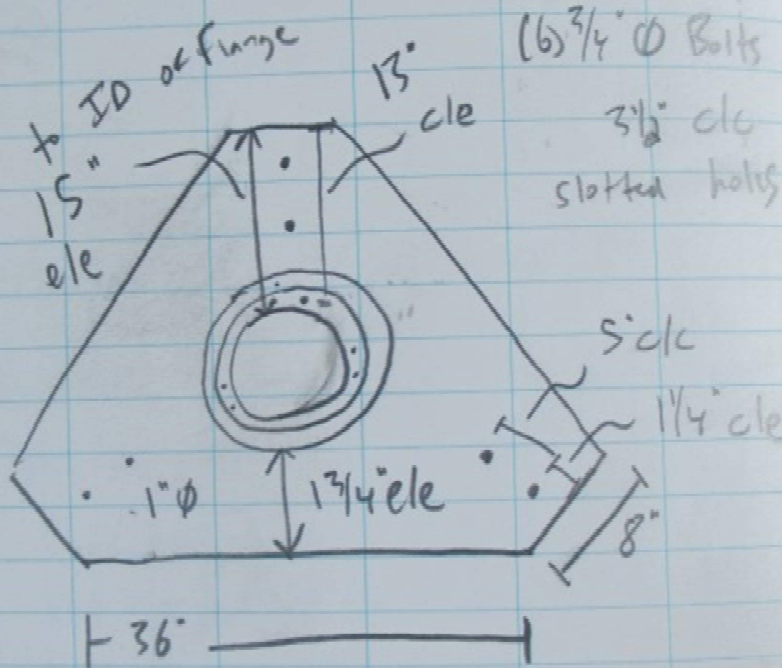 to ID of flange
15"
ele
13"
cle
(6) 3/4" Ø Bolts
3 1/2" c/c
slotted holes
5" c/c
1 1/4" cle
8"
1" Ø
1 3/4" ele
36"